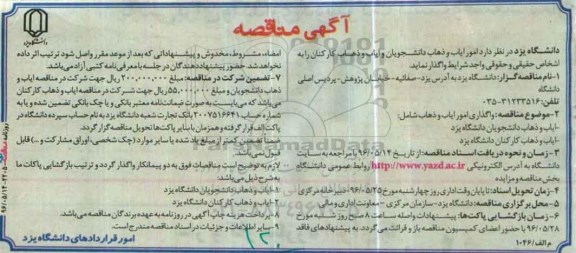 آگهی مناقصه
دانشگاه یزد در نظر دارد امور ایاب و ذهاب دانشجویان و ایاب و ذهاب کارکنان را به
اشخاص حقیقی و حقوقی واجد شرایط واگذار نماید.
۱-نام مناقصه گزار: دانشگاه یزد به آدرس یزد-صفائیه-خیابان پژوهش-پردیس اصلی
دانشگاه
تلفن: ۳۱۲۳۳۵۱۶-۰۳۵
۲-موضوع مناقصه: واگذاری امور ایاب و ذهاب شامل:
-ایاب و ذهاب دانشجویان دانشگاه یزد
-ایاب و ذهاب کارکنان دانشگاه یزد
۳- زمان و نحوه دریافت اسناد مناقصه: از تاریخ ۹۶/۰۵/۱۴ با مراجعه به سایت
دانشگاه به آدرس الکترونیکی http://www.yazd.ac.ir روابط عمومی دانشگاه
بخش مناقصه و مزایده
۴- زمان تحویل اسناد: تا پایان وقت اداری روز چهارشنبه مورخ ۹۶/۰۵/۲۵ دبیرخانه مرکزی
۵- محل برگزاری مناقصه: دانشگاه یزد-سازمان مرکزی - معاونت اداری و مالی
۶- زمان بازگشایی پاکت‌ها: پیشنهادات واصله ساعت ۸ صبح روز شنبه مورخ
۹۶/۰۵/۲۸ با حضور اعضای کمیسیون مناقصه باز و قرائت می‌گردد. به پیشنهادهای فاقد
امضاء، مشروط، مخدوش و پیشنهاداتی که بعد از موعد مقرر واصل شود ترتیب اثر داده
نخواهد شد. حضور پیشنهاد دهندگان در جلسه با معرفی نامه کتبی آزاد می‌باشد.
۷- تضمین شرکت در مناقصه: مبلغ ۲۰۰,۰۰۰,۰۰۰ ریال جهت شرکت در مناقصه ایاب و
ذهاب دانشجویان و مبلغ ۵۵,۰۰۰,۰۰۰ ریال جهت شرکت در مناقصه ایاب و ذهاب کارکنان
می‌باشد که می‌بایست به صورت ضمانت‌نامه معتبر بانکی و یا چک بانکی تضمین شده و یا به
شماره حساب ۲۰۰۷۵۱۶۶۴۱ بانک تجارت شعبه دانشگاه یزد به نام حساب سپرده دانشگاه در
پاکت الف قرار گرفته و همزمان با سایر پاکت‌ها تحویل مناقصه گزار گردد.
ضمناً تضمین کمتر از مبلغ یاد شده یا سایر موارد (چک شخصی، اوراق مشارکت و ...) قابل
قبول نمی‌باشد.
لازم به توضیح است مناقصات فوق به دو پیمانکار واگذار گردد و ترتیب بازگشایی پاکات ما
به شرح ذیل می‌باشد.
۱-ایاب و ذهاب دانشجویان دانشگاه یزد
۲-ایاب و ذهاب کارکنان دانشگاه یزد
۸- پرداخت هزینه چاپ آگهی در روزنامه به عهده برندگان مناقصه می‌باشد.
۹- سایر اطلاعات و جزئیات در اسناد مناقصه مندرج است.
امور قراردادهای دانشگاه یزد
م الف/۱۰۴۶